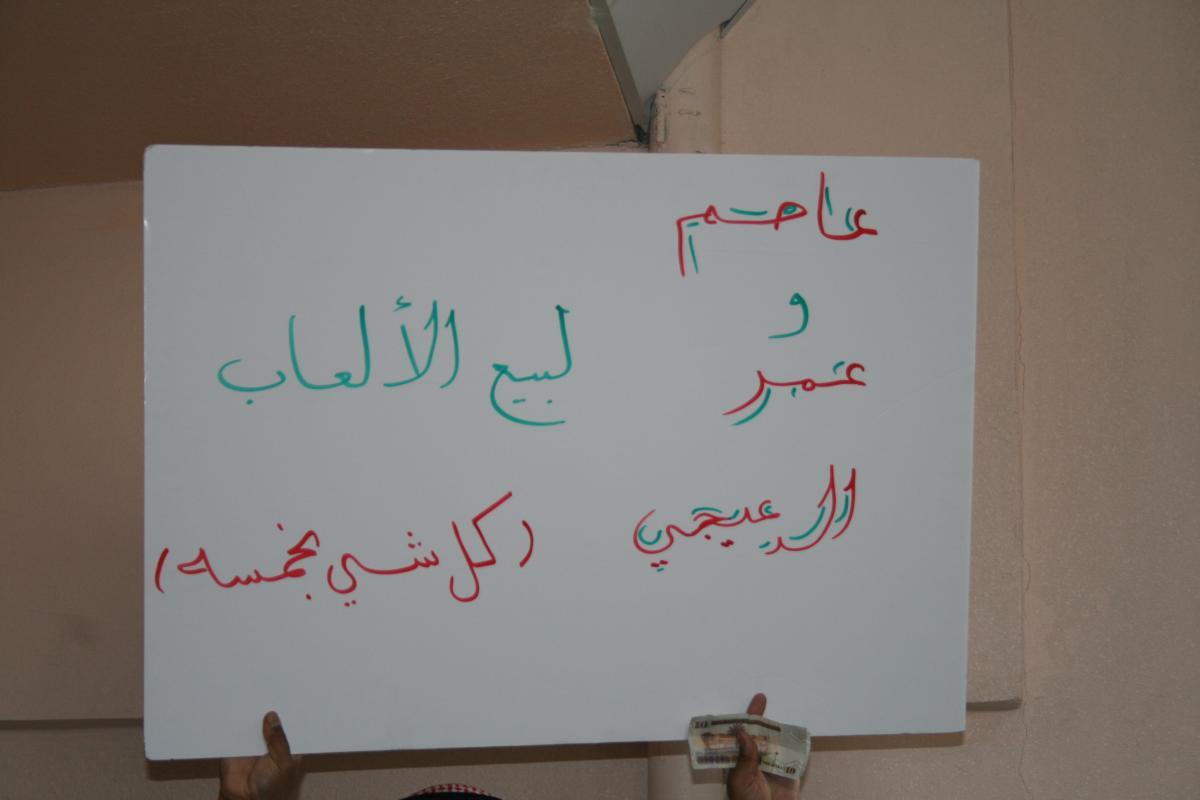 عاصم
و
عمر
الدعيجي
لبيع الألعاب
(كل شي بخمسه)
10